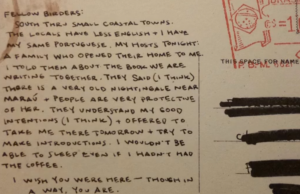 FELLOW BIRDERS!
SOUTH THRU SMALL COASTAL TOWNS.
THE LOCALS HAVE LESS ENGLISH + I HAVE
MY SAME PORTUGUESE. MY HOSTS TONIGHT:
A FAMILY WHO OPENED THEIR HOME TO ME.
I TOLD THEM ABOUT THE BOOK WE ARE
WRITING TOGETHER. THEY SAID (I THINK)
THERE IS A VERY OLD NIGHTINGALE NEAR
MARAÚ + PEOPLE ARE VERY PROTECTIVE
OF HER. THEY UNDERSTAND MY GOOD
INTENTIONS (I THINK) + OFFERED TO
TAKE ME THERE TOMORROW + TRY TO
MAKE INTRODUCTIONS. I WOULDN'T BE
ABLE TO SLEEP EVEN IF I HADN'T HAD
THE COFFEE.
I WISH YOU WERE HERE — THOUGH IN
A WAY, YOU ARE.
THIS SPACE FOR NAME